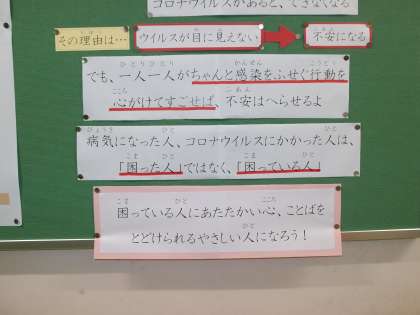 コロナウイルスがあると、できなくなる
その理由は…
ウイルスが目に見えない
不安になる
でも、一人一人がちゃんと感染をふせぐ行動を
心がけてすごせば、不安はへらせるよ
病気になった人、コロナウイルスにかかった人は、
「困った人」ではなく、「困っている人」
困っている人にあたたかい心、ことばを
とどけられるやさしい人になろう！